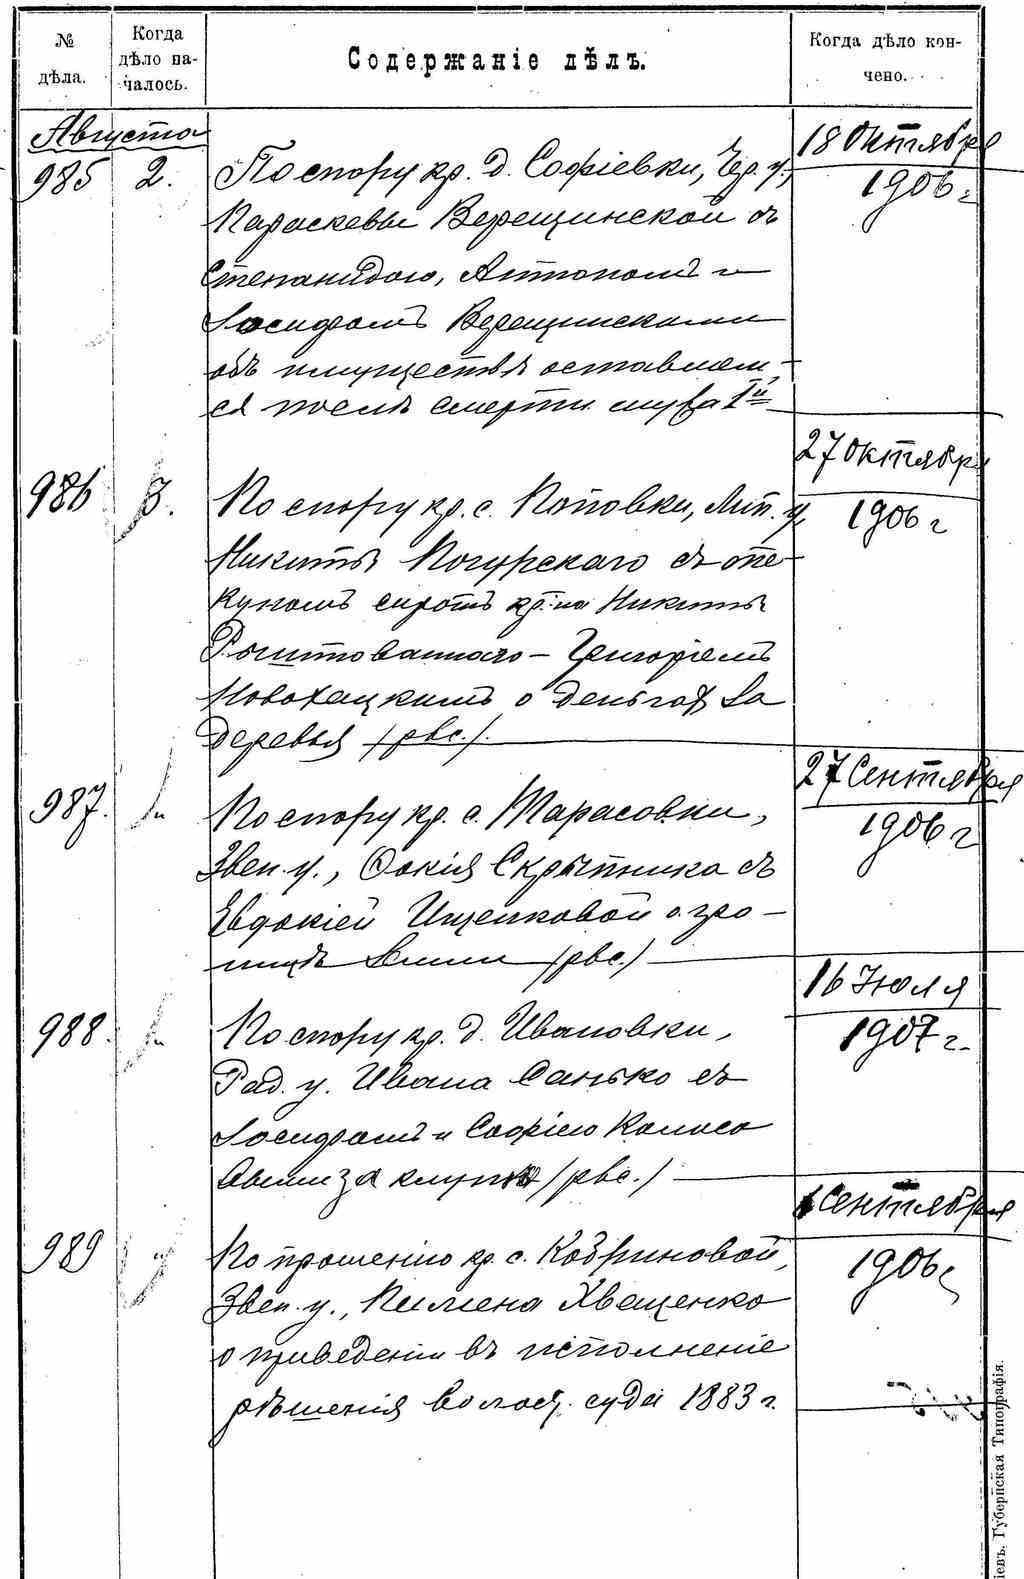 № дѣла.
Когда дѣло на-
чалось.
Содержаніе дѣлъ.
Когда дѣло кон-
чено.
Августа
985 2. По спору кр. д. Софіевки, Чер. у., 18 Октября
Параскевы Верещинской съ 1906 г
Степанидою, Антономъ и
Іосифомъ Верещинскими
объ имуществѣ оставшем-
ся послѣ смерти мужа 1й
986 3. По спору кр. с. Поповки, Лип. у. 27 Октября
Никиты Погурскаго съ опе- 1906 г
куномъ сиротъ кр-на Никиты
Григоріемъ
Новохацкимъ о деньгах за
деревья /рвс./.
987. По спору кр. с. Тарасовки, 27 Сентября
Звен. у., Фокія Скрыпника съ 1906 г
Евдокіей Ищенковой о гра-
ницѣ земли /рвс./
988. По спору кр. д. Ивановки, 16 Іюля
Рад. у. Ивана Санько съ 1907 г.
Іосифомъ и Софіею Колисо
авыми за клуню /рвс./
989 По прошенію кр. с. Кобриновой, Сентября
Звен. у., Пимена Хващенко 1906 г
о приведеніи въ исполненіе
рѣшенія волост. суда 1883 г.
іевъ. Губернская Типографія.